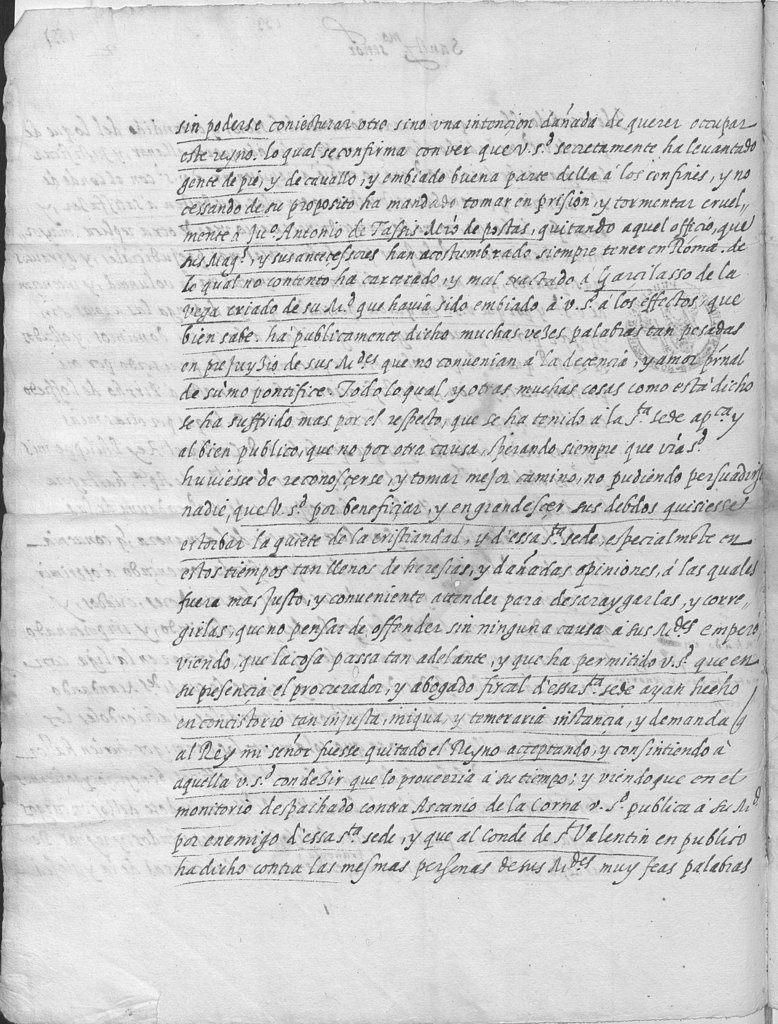 sin poderse coniecturar otro sino vna intencion dañada de querer occupar
este reyno. lo qual se confirma con ver que v. s.d secretamente ha leuantado
gente de pie, y de cauallo, y embiado buena parte della á los confines, y no
cessando de su proposito ha mandado tomar en prision, y tormentar cruel,,
mente a Juo. Antonio de Tassis de postas, quitando aquel officio, que
sus Mag.s, y sus antecessores han acostumbrado siempre tener en Roma. de
lo qual no contento ha carcerado, y mal trattado á Garcilasso de la
vega criado de su M.d que hauia sido embiado á v. s.d á los effettos, que
bien sabe. ha publicamente dicho muchas vezes palabras tan pesadas
en prejuyzio de sus M.des que no conuenian á la decencia, y amor p'rnal
de sumo pontifice. Todo lo qual, y otras muchas cosas como está dicho
se ha suffrido mas por el respetto, que se ha tenido á la s.ta sede ap.ca y
al bien publico, que no por otra causa, sperando siempre que v'ra s.d
huuiesse de reconoscerse, y tomar mejor camino, no pudiendo persuadirse
nadie, que V. s.d por beneficiar, y engrandescer sus debdos quisiesse
estorbar la quiete de la cristiandad, y d'essa s.ta sede, especialmẽte en
estos tiempos tan llenos de heresias, y dañadas opiniones, á las quales
fuera mas justo, y conueniente attender para desaraygarlas, y corre,,
girlas, que no pensar de offender sin ninguna causa á sus M.des empero
viendo, que la cosa passa tan adelante, y que ha permitido v. s.d que en
su presencia el procurador, y abogado fiscal d'essa s.ta sede ayan hecho
en concistorio tan injusta, iniqua, y temeraria instancia, y demanda q
al Rey mi señor fuesse quitado el Reyno acceptando, y consintiendo á
aquella v. s.d con dezir que lo proueeria a su tiempo; y viendo que en el
monitorio despachado contra Ascanio de la Corna v. s.d publica á su M.d
por enemigo d'essa s.ta sede, y que al Conde de s.t Valentin en publico
ha dicho contra las mesmas personas de sus M.des muy feas palabras